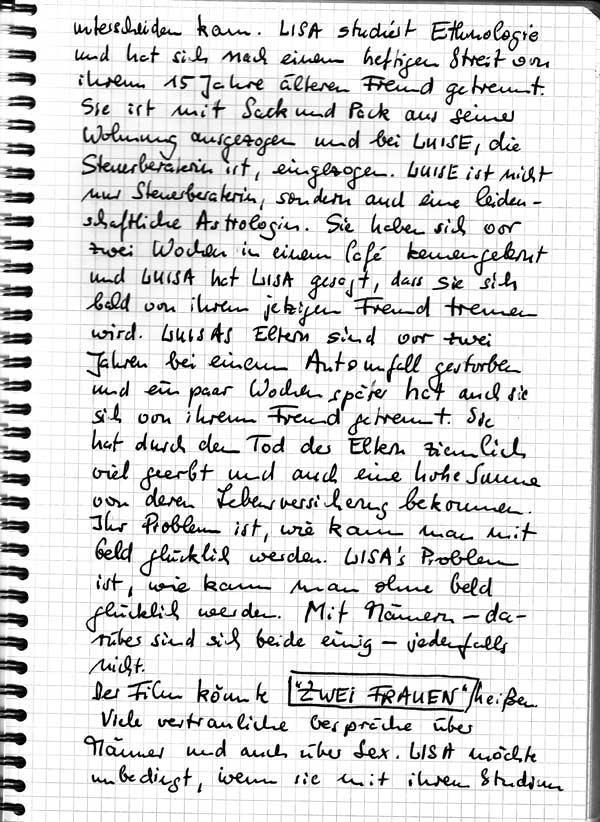 unterscheiden kann. LISA studiert Ethnologie
und hat sich nach einem heftigen Streit von
ihrem 15 Jahre älteren Freund getrennt.
Sie ist mit Sack und Pack aus seiner
Wohnung ausgezogen und bei LUISE, die
Steuerberaterin ist, eingezogen. LUISE ist nicht
nur Steuerberaterin, sondern auch eine leiden-
schaftliche Astrologin. Sie haben sich vor
zwei Wochen in einem Café kennengelernt
und LUISA hat LISA gesagt, dass sie sich
bald von ihrem jetzigen Freund trennen
wird. LUISAs Eltern sind vor zwei
Jahren bei einem Autounfall gestorben
und ein paar Wochen später hat auch sie
sich von ihrem Freund getrennt. Sie
hat durch den Tod der Eltern ziemlich
viel geerbt und auch eine hohe Summe
von deren Lebensversicherung bekommen.
Ihr Problem ist, wie kann man mit
Geld glücklich werden. LISA's Problem
ist, wie kann man ohne Geld
glücklich werden. Mit Männern – da-
rüber sind sich beide einig – jedenfalls
nicht.
Der Film könnte "ZWEI FRAUEN" heißen.
Viele vertrauliche Gespräche über
Männer und auch über Sex. LISA möchte
unbedingt, wenn sie mit ihrem Studium